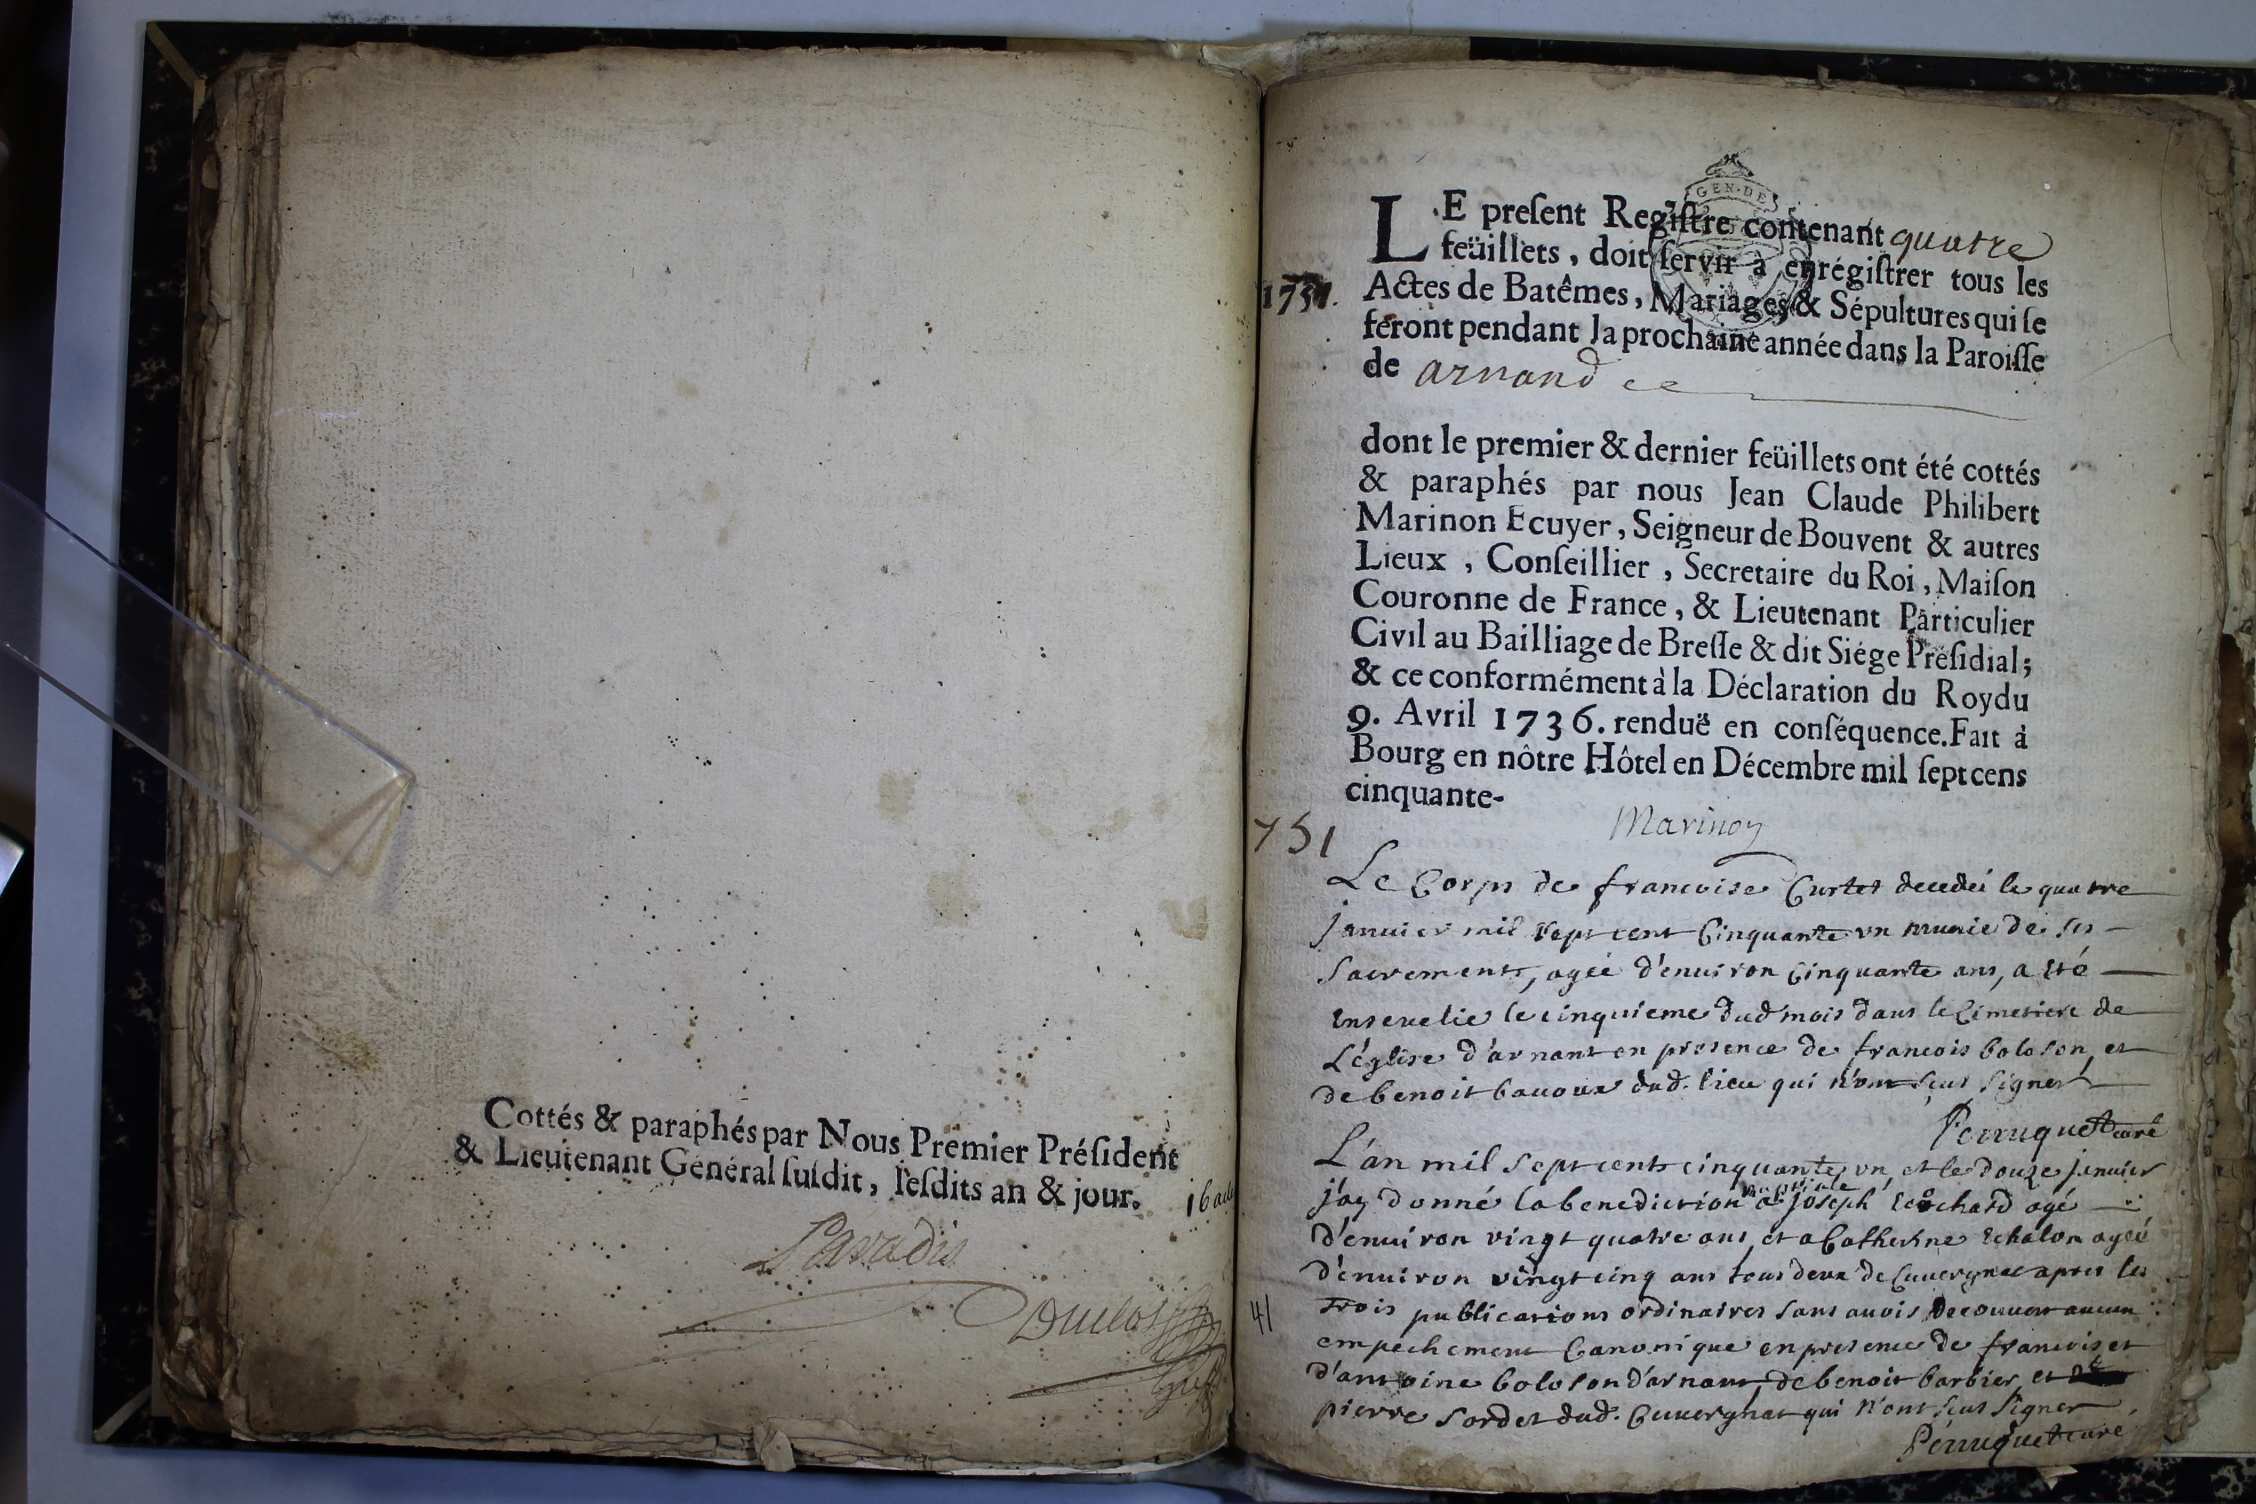 Cottés & paraphés par Nous Premier Préſident
& Lieutenant Général ſuſdit, leſdits an & jour.
16 actes
Duclos
GEN·DE
LE preſent Regiſtre contenant quatre
feüillets, doit ſervir à enrégiſtrer tous les
1751.
Actes de Batêmes, Mariages & Sépultures qui ſe
feront pendant la prochaine année dans la Paroiſſe
de arnand
dont le premier & dernier feüillets ont été cottés
& paraphés par nous Jean Claude Philibert
Marinon Ecuyer, Seigneur de Bouvent & autres
Lieux, Conſeillier, Secretaire du Roi, Maiſon
Couronne de France, & Lieutenant Particulier
Civil au Bailliage de Breſſe & dit Siége Préſidial;
& ce conformément à la Déclaration du Roy du
9. Avril 1736. renduë en conſéquence. Fait à
Bourg en nôtre Hôtel en Décembre mil ſept cens
cinquante-
Marinon
751
Le Corps de francoise Curtet decedeé le quatre
januier mil sept cent Cinquante vn munie de ses
sacrements, ageé d'enuiron Cinquante ans, a eté
enseuelie le cinquieme dud mois dans le Cimetiere de
L'église d'arnant en presence de francois boloson, et
de benoit bauoux dud. lieu qui n'ont seut signer
Perruquet curé
L'an mil sept cents cinquante vn, et le douze januier
j'ay donné la benediction nuptiale a joseph echochard agé
d'enuiron vingt quatre ans, et a Catherine Echalon ageé
d'enuiron vingt cinq ans tous deux de Cuuergnat apres les
trois publications ordinaires sans auoir decouuert aucun
41
empechement Canonique en presence de francois et
d'antoine boloson d'arnant, de benoit barbier, et de
pierre sordet dud. Cuuergnat qui n'ont seut signer
Perruquet curé